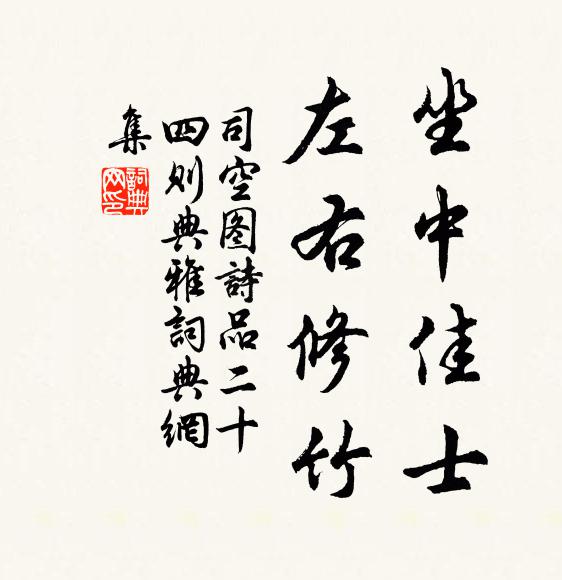 坐中佳士
左右修竹
司空图詩品二十
四则典雅詞典網
集
詞典
网印